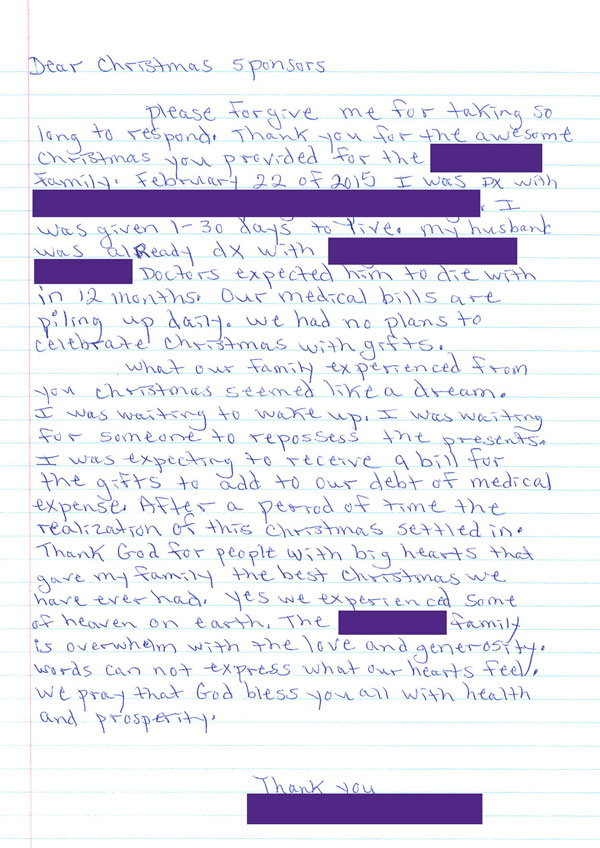 Dear Christmas Sponsors
please forgive me for taking so
long to respond. Thank you for the awesome
Christmas you provided for the
family. February 22 of 2015 I was DX with
. I
was given 1-30 days to live. my husband
was already dx with
Doctors expected him to die with
in 12 months. Our medical bills are
piling up daily. we had no plans to
celebrate Christmas with gifts.
what our family experienced from
you christmas seemed like a dream.
I was waiting to wake up. I was waiting
for someone to repossess the presents.
I was expecting to receive a bill for
the gifts to add to our debt of medical
expense. After a period of time the
realization of this christmas settled in.
Thank God for people with big hearts that
gave my family the best christmas we
have ever had. yes we experienced some
of heaven on earth. The family
is overwhelm with the love and generosity.
words can not express what our hearts feel.
We pray that God bless you all with health
and prosperity.
Thank you